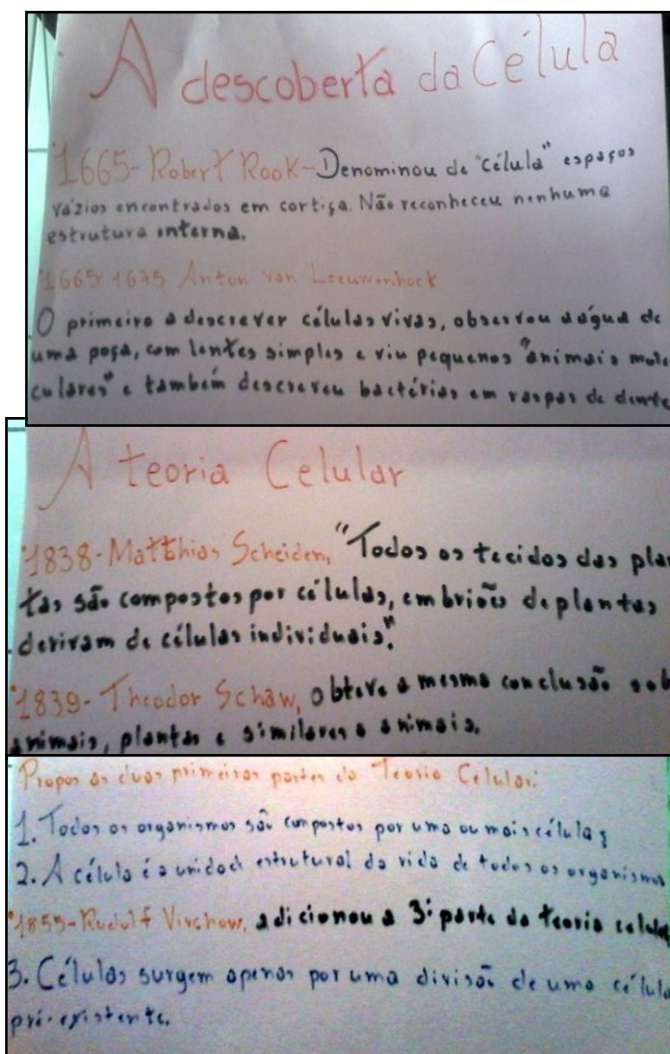 A descoberta da Célula
*1665- Robert Rook-Denominou de "célula" espaços
vázios encontrados em cortiça. Não reconheceu nenhuma
estrutura interna.
*1665-1675 Anton van Leeuwenhoek
O primeiro a descrever células vivas, observou a água de
uma poça, com lentes simples e viu pequenos "animais mole
culares" e também descreveu bactérias em raspas de dente
A teoria Celular
*1838-Matthias Scheiden, "Todos os tecidos das plan
tas são compostos por células, embriões de plantas
derivam de células individuais."
*1839-Theodor Schaw, obteve a mesma conclusão sob
animais, plantas e similares a animais.
Propos as duas primeiras partes da Teoria Celular:
1. Todos os organismos são compostos por uma ou mais células
2. A célula é a unidade estrutural da vida de todos os organismos
*1855-Rudolf Virchow, adicionou a 3ª parte da teoria celula
3. Células surgem apenas por uma divisão de uma célula
pré-existente.